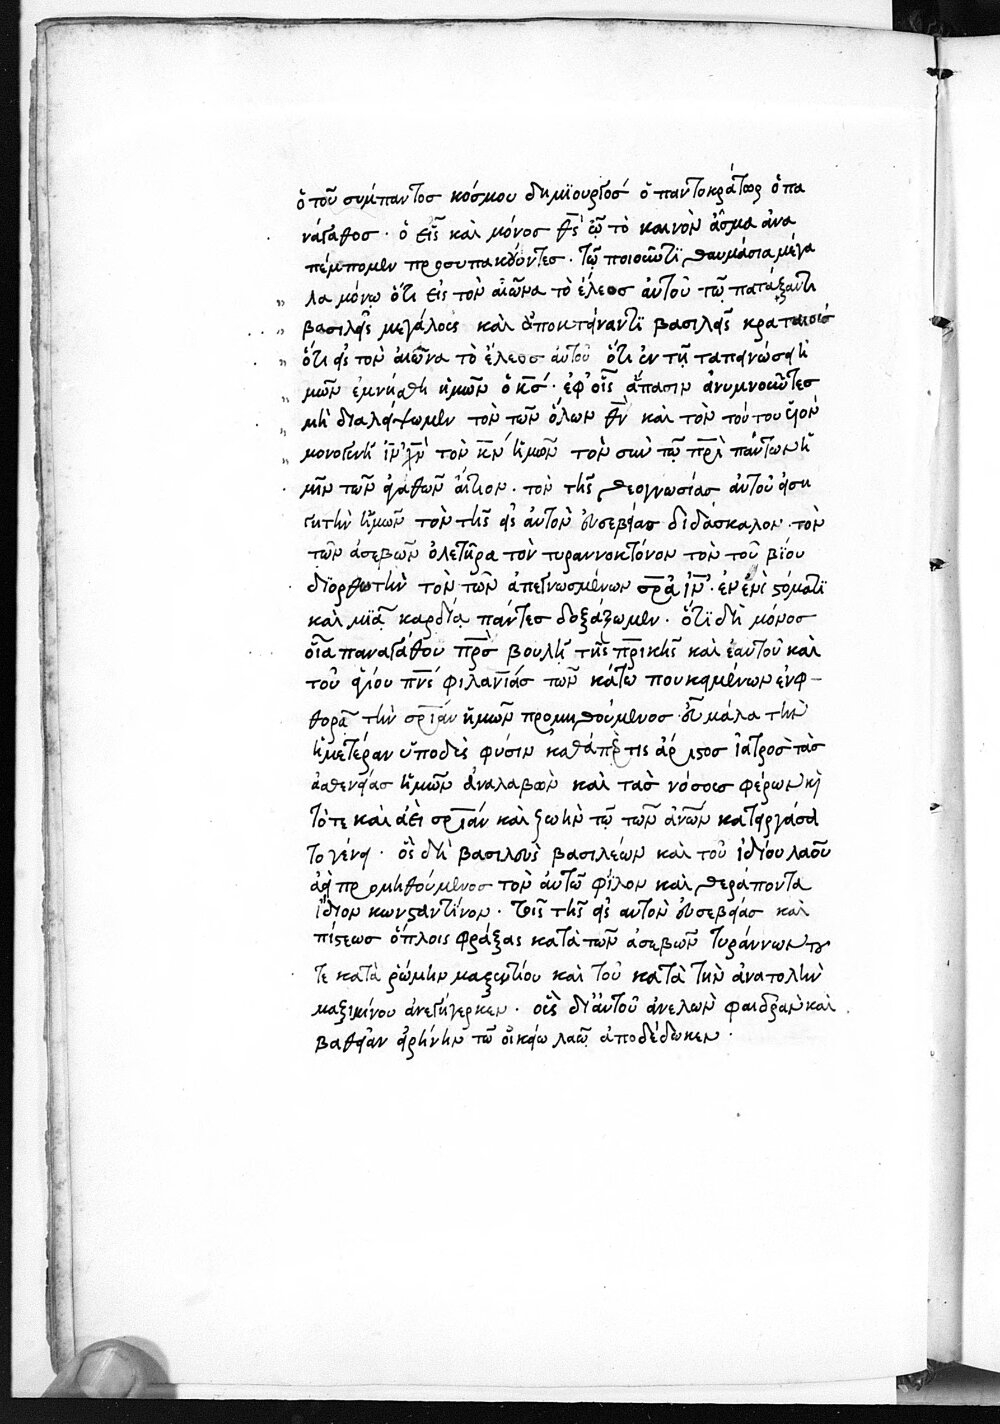 ὁ τοῦ σύμπαντος κόσμου δημϊουργός ὁ παντοκράτωρ ὁ πα
νάγαθος · ὁ εἷς καὶ μόνος θς̅ ᾧ τὸ καινὸν ἆσμα ἀνα
πέμπομεν προσυπακούοντες · τῷ ποιοῦντϊ θαυμάσια μεγά
λα μόνῳ ὅτι εἰς τὸν αἰῶνα τὸ ἔλεος αὐτοῦ τῷ πατάξαντι
βασιλεῖς μεγάλους καὶ ἀποκτείναντϊ βασιλεῖς κραταιούς
ὅτι εἰς τὸν αἰῶνα τὸ ἔλεος αὐτοῦ ὅτι ἐν τῇ ταπεινώσει ἡ
μῶν ἐμνήσθη ἡμῶν ὁ κς̅ · ἐφ' οἷς ἅπασιν ἀνυμνοῦντες
μὴ διαλείπωμεν τὸν τῶν ὅλων θν̅ καὶ τὸν τούτου υἱὸν
μονογενῆ ιν̅ χν̅ τὸν κν̅ ἡμῶν τὸν σὺν τῷ πρι̅ πάντων ἡ
μῖν τῶν ἀγαθῶν αἴτιον · τὸν τῆς θεογνωσίας αὐτοῦ εἰση
γητὴν ἡμῶν τὸν τῆς εἰς αὐτὸν εὐσεβείας διδάσκαλον · τὸν
τῶν ἀσεβῶν ὀλετῆρα τὸν τυραννοκτόνον τὸν τοῦ βϊου
διορθωτὴν τὸν τῶν ἀπεγνωσμένων σρ̅α ιν̅ · ἐν ἑνὶ στόματϊ
καὶ μϊᾷ καρδίᾳ πάντες δοξάζωμεν · ὅτϊ δὴ μόνος
οἷα παναγάθου πρ̅ς βουλῇ τῆς πρ̅ικῆς καὶ ἑαυτοῦ καὶ
τοῦ ἁγίου πν̅ς φιλαν̅ίας τῶν κάτω που κειμένων ἐν φ-
θορᾷ τὴν σρ̅ίαν ἡμῶν προμηθούμενος εὖ μάλα τὴν
ἡμετέραν ὑποδὺς φύσιν καθάπερ τις ἄριστος ἰατρὸς τὰς
ἀσθενείας ἡμῶν ἀναλαβὼν καὶ τὰς νόσους φέρων καὶ
τότε καὶ ἀεὶ σρ̅ίαν καὶ ζωὴν τῷ τῶν ἀν̅ων κατειργάσα
το γένει · ὃς δὴ βασιλεὺς βασιλέων καὶ τοῦ ἰδίου λαοῦ
ἀεὶ προμηθούμενος τὸν αὐτῶ φίλον καὶ θεράποντα
ἴδιον κωνσαντῖνον · τοῖς τῆς εἰς αὐτὸν εὐσεβείας καὶ
πίστεως ὅπλοις φράξας κατὰ τῶν ἀσεβῶν τυράννων τοῦ
τε κατὰ ῥώμην μαξεντίου καὶ τοῦ κατὰ τὴν ἀνατολὴν
μαξιμίνου ἀνεγήγερκεν · οὓς δι' αὐτοῦ ἀνελὼν φαιδρὰν καὶ
βαθεῖαν εἰρήνην τῶ οἰκείω λαῷ ἀποδέδωκεν ·